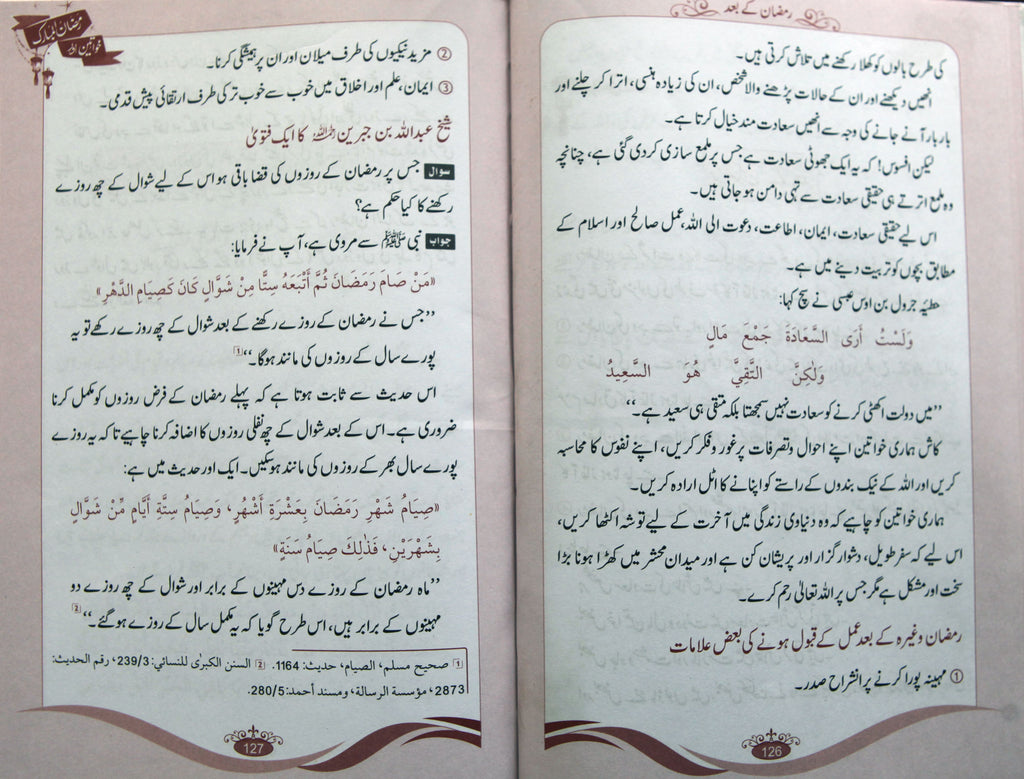 رمضان کے بعد
کی طرح بالوں کو کھلا رکھنے میں تلاش کرتی ہیں۔
انھیں دیکھنے اور ان کے حالات پڑھنے والا شخص، ان کی زیادہ ہنسی، اترا کر چلنے اور
بار بار آنے جانے کی وجہ سے انھیں سعادت مند خیال کرتا ہے۔
لیکن افسوس! کہ یہ ایک جھوٹی سعادت ہے جس پر ملمع سازی کر دی گئی ہے، چنانچہ
وہ ملمع اترتے ہی حقیقی سعادت سے تہی دامن ہو جاتی ہیں۔
اس لیے حقیقی سعادت، ایمان، اطاعت، دعوت الی اللہ، عمل صالح اور اسلام کے
مطابق بچوں کو تربیت دینے میں ہے۔
حطیۂ جرول بن اوس عبسی نے سچ کہا:
وَلَسْتُ أَرَى السَّعَادَةَ جَمْعَ مَالٍ
وَلٰكِنَّ التَّقِيَّ هُوَ السَّعِيدُ
”میں دولت اکٹھی کرنے کو سعادت نہیں سمجھتا بلکہ متقی ہی سعید ہے۔“
کاش ہماری خواتین اپنے احوال وتصرفات پر غور وفکر کریں، اپنے نفوس کا محاسبہ
کریں اور اللہ کے نیک بندوں کے راستے کو اپنانے کا اٹل ارادہ کریں۔
ہماری خواتین کو چاہیے کہ وہ دنیاوی زندگی میں آخرت کے لیے توشہ اکٹھا کریں،
اس لیے کہ سفر طویل، دشوار گزار اور پریشان کن ہے اور میدان محشر میں کھڑا ہونا بڑا
سخت اور مشکل ہے مگر جس پر اللہ تعالیٰ رحم کرے۔
رمضان وغیرہ کے بعد عمل کے قبول ہونے کی بعض علامات
① مہینہ پورا کرنے پر انشراح صدر۔
126
رمضان المبارک
خواتین اور
② مزید نیکیوں کی طرف میلان اور ان پر ہمیشگی کرنا۔
③ ایمان، علم اور اخلاق میں خوب سے خوب تر کی طرف ارتقائی پیش قدمی۔
شیخ عبداللہ بن جبرین رحمہ اللہ کا ایک فتویٰ
سوال جس پر رمضان کے روزوں کی قضا باقی ہو اس کے لیے شوال کے چھ روزے
رکھنے کا کیا حکم ہے؟
جواب نبی ﷺ سے مروی ہے، آپ نے فرمایا:
«مَنْ صَامَ رَمَضَانَ ثُمَّ أَتْبَعَهُ سِتًّا مِنْ شَوَّالٍ كَانَ كَصِيَامِ الدَّهْرِ»
”جس نے رمضان کے روزے رکھنے کے بعد شوال کے چھ روزے رکھے تو یہ
پورے سال کے روزوں کی مانند ہوگا۔“ [1]
اس حدیث سے ثابت ہوتا ہے کہ پہلے رمضان کے فرض روزوں کو مکمل کرنا
ضروری ہے۔ اس کے بعد شوال کے چھ نفلی روزوں کا اضافہ کرنا چاہیے تا کہ یہ روزے
پورے سال بھر کے روزوں کی مانند ہوسکیں۔ ایک اور حدیث میں ہے:
«صِيَامُ شَهْرِ رَمَضَانَ بِعَشْرَةِ أَشْهُرٍ، وَصِيَامُ سِتَّةِ أَيَّامٍ مِّنْ شَوَّالٍ
بِشَهْرَيْنِ، فَذٰلِكَ صِيَامُ سَنَةٍ»
”ماہ رمضان کے روزے دس مہینوں کے برابر اور شوال کے چھ روزے دو
مہینوں کے برابر ہیں، اس طرح گویا کہ یہ مکمل سال کے روزے ہو گئے۔“ [2]
[1] صحيح مسلم، الصيام، حديث: 1164. [2] السنن الكبرٰى للنسائي: 239/3، رقم الحديث:
2873، مؤسسة الرسالة، ومسند أحمد: 280/5.
127